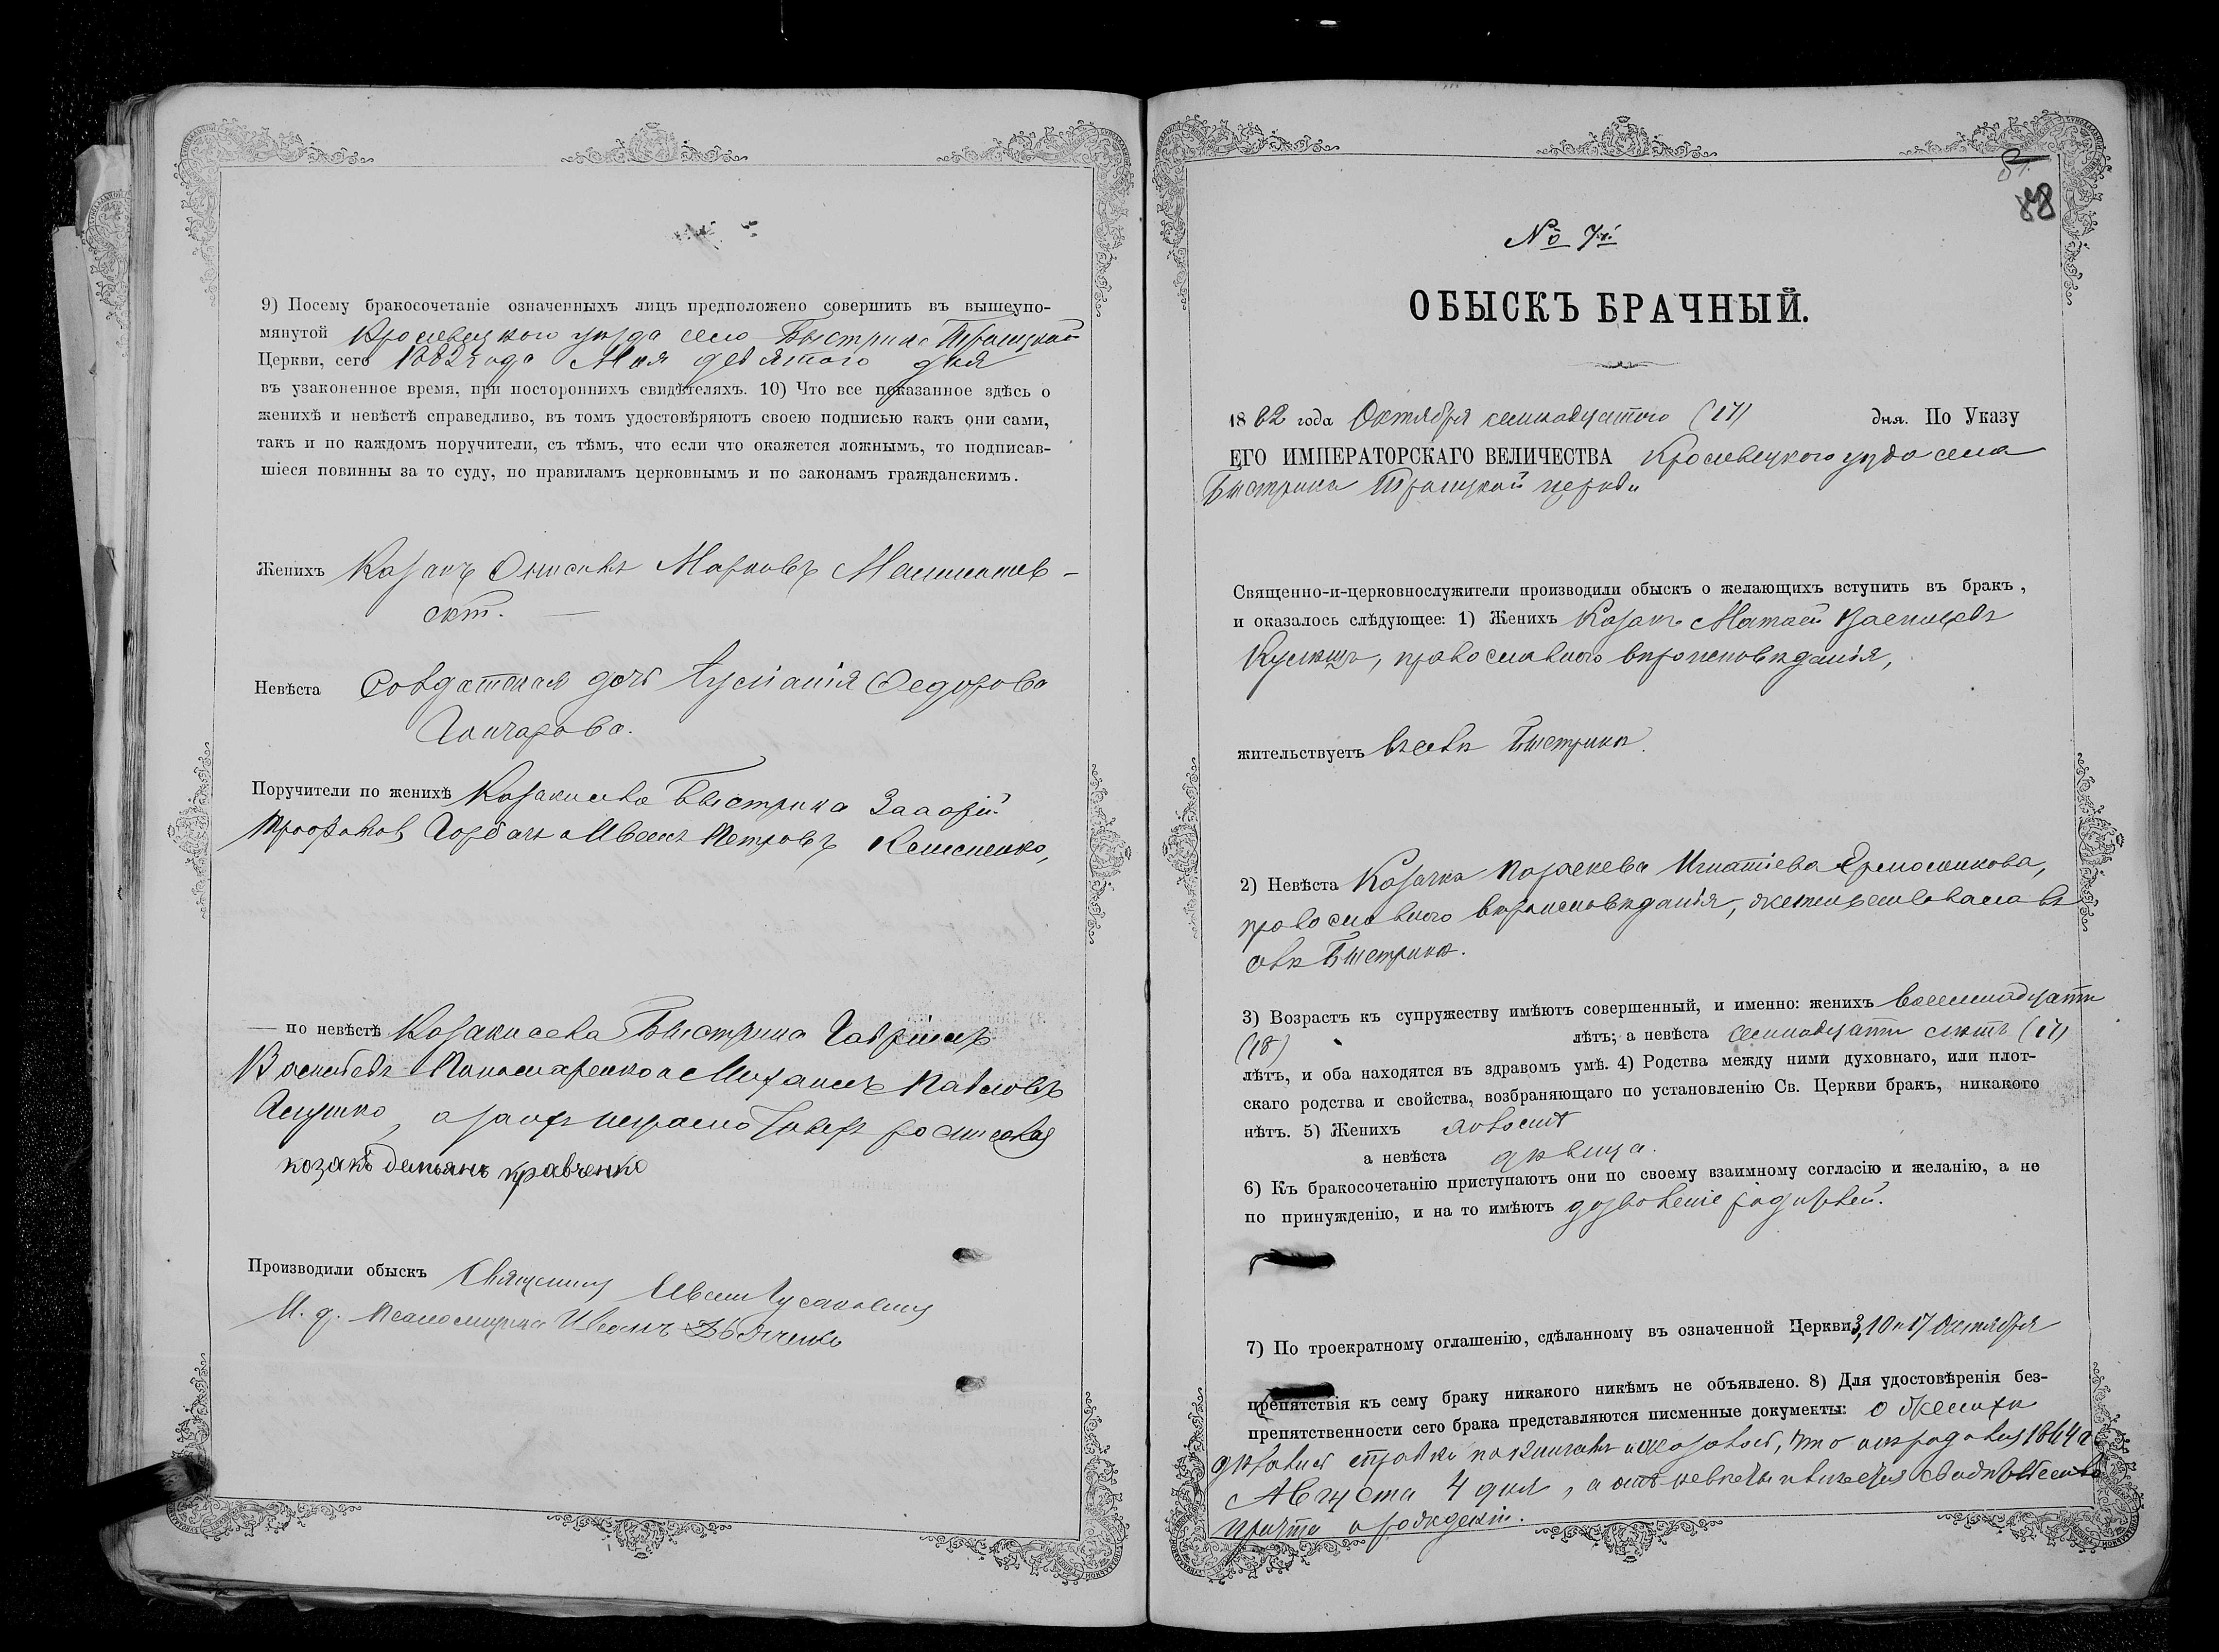 9) Посему бракосочетаніе означенныхъ лицъ предположено совершить въ вышеупо-
мянутой Кролевецкого уѣзда села Быстрика Троицкой
Церкви, сего 1882 года Мая девятого дня
въ узаконенное время, при постороннихъ свидѣтеляхъ. 10) Что все показанное здѣсь о
женихѣ и невѣстѣ справедливо, въ томъ удостовѣряютъ своею подписью какъ они сами,
такъ и по каждомъ поручители, съ тѣмъ, что если что окажется ложнымъ, то подписав-
шіеся повинны за то суду, по правиламъ церковнымъ и по законамъ гражданскимъ.
Женихъ Козакъ Марковъ
Невѣста дочь Федорова
Гончарова.
Поручители по женихѣ Козаки села Быстрика
Горбачъ Петровъ
— по невѣстѣ Козаки села Быстрика Гавріилъ
Васильевъ Пономаренко и Михаилъ Павловъ
козакъ демьянъ кравченко
Производили обыскъ Священникъ
И. д. Псаломщика Иванъ
88
№ 7й
ОБЫСКЪ БРАЧНЫЙ.
1882 года Октября семнадцатого (17) дня. По Указу
ЕГО ИМПЕРАТОРСКАГО ВЕЛИЧЕСТВА Кролевецкого уѣзда села
Быстрика Троицкой церкви
Священно-и-церковнослужители производили обыскъ о желающихъ вступить въ бракъ,
и оказалось слѣдующее: 1) Женихъ Козакъ Матвей Васильевъ
православного вѣроисповѣданія,
жительствуетъ въ селѣ Быстрикѣ.
2) Невѣста Козачка Параскева Игнатіева Ермоленкова,
православного вѣроисповѣданія, въ
селѣ Быстрикѣ.
3) Возрастъ къ супружеству имѣютъ совершенный, и именно: женихъ восемнадцати
(18) лѣтъ; а невѣста семнадцати лѣтъ (17)
лѣтъ, и оба находятся въ здравомъ умѣ. 4) Родства между ними духовнаго, или плот-
скаго родства и свойства, возбраняющаго по установленію Св. Церкви бракъ, никакого
нѣтъ. 5) Женихъ холостъ
а невѣста дѣвица.
6) Къ бракосочетанію приступаютъ они по своему взаимному согласію и желанію, а не
по принужденію, и на то имѣютъ дозволеніе родителей.
7) По троекратному оглашенію, сдѣланному въ означенной Церкви 3, 10 и 17 Октября
препятствія къ сему браку никакого никѣмъ не объявлено. 8) Для удостовѣренія без-
препятственности сего брака представляются писменные документы: о женихѣ
справка по книгамъ и оказалось, что онъ родился 1864 г.
Августа 4 дня, а о невѣстѣ
причта о рожденіи.